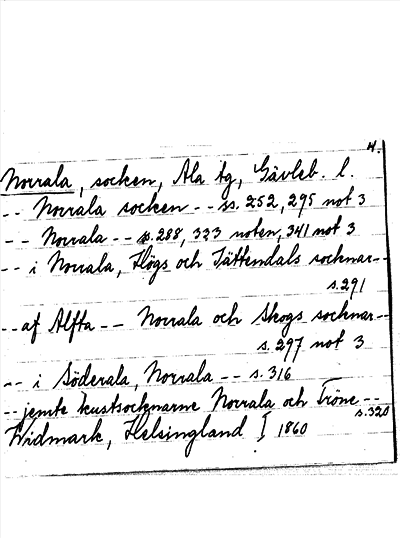 4.
Norrala, socken, Ala tg, Gävleb. l.
-- Norrala socken -- ss. 252, 295 not 3
-- Norrala -- s. 288, 323 noten, 341 not 3
-- i Norrala, Högs och Jättendals socknar--
s. 291
-- af Alfta -- Norrala och Skogs socknar--
s. 297 not 3
-- i Söderala, Norrala -- s. 316
-- jemte kustsocknarne Norrala och Tröne --
s. 320
Widmark, Helsingland I 1860